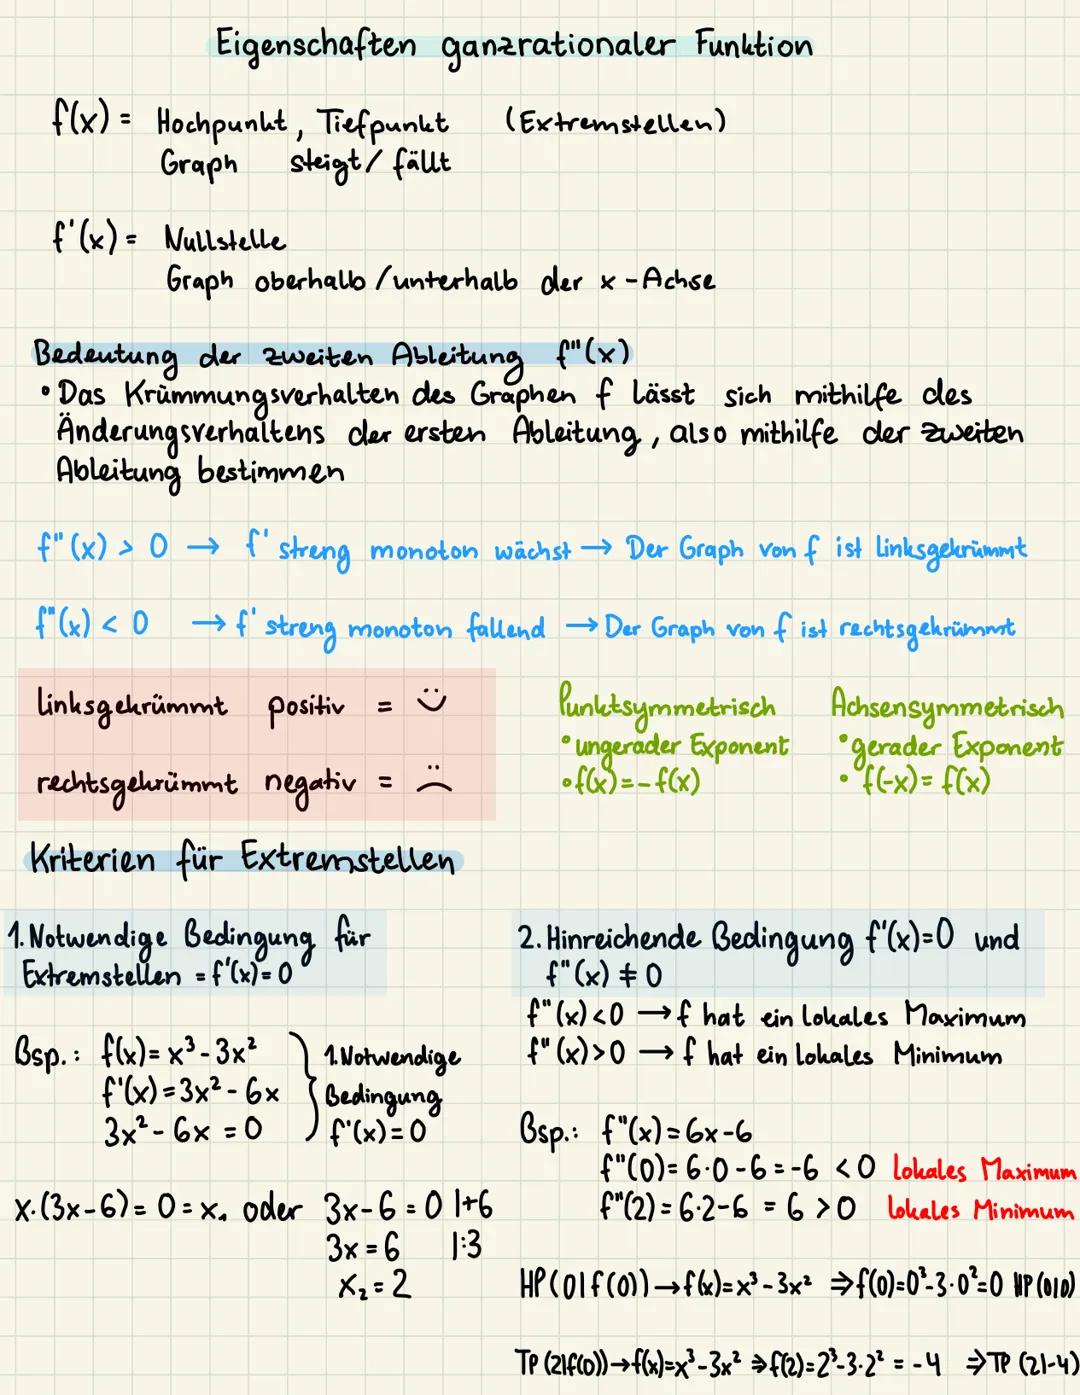 Eigenschaften ganzrationaler Funktion
f(x) = Hochpunkt, Tiefpunkt (Extremstellen)
Graph steigt/ fällt
f'(x) = Nullstelle
Graph oberhalb /unterhalb der x-Achse
Bedeutung der zweiten Ableitung f"(x)
• Das Krümmungsverhalten des Graphen f lässt sich mithilfe des
Änderungsverhaltens der ersten Ableitung, also mithilfe der zweiten
Ableitung bestimmen
f"(x) > 0 → f' streng monoton wächst → Der Graph von f ist linksgekrümmt
f"(x) < 0 → f' streng monoton fallend → Der Graph von f ist rechtsgekrümmt
linksgekrümmt positiv = :)
rechtsgekrümmt negativ = :(
Punktsymmetrisch
• ungerader Exponent
• f(x) = -f(x)
Achsensymmetrisch
• gerader Exponent
• f(-x) = f(x)
Kriterien für Extremstellen
1. Notwendige Bedingung für
Extremstellen = f'(x) = 0
Bsp.: f(x) = x³ - 3x²
f'(x) = 3x² - 6x
3x² - 6x = 0
1. Notwendige
Bedingung
f'(x) = 0
x·(3x-6) = 0 = x₁ oder 3x-6 = 0 |+6
3x = 6 |:3
x₂ = 2
2. Hinreichende Bedingung f'(x)=0 und
f"(x) ≠ 0
f"(x) < 0 → f hat ein lokales Maximum
f"(x) > 0 → f hat ein lokales Minimum
Bsp.: f"(x) = 6x-6
f"(0) = 6·0-6 = -6 < 0 lokales Maximum
f"(2) = 6·2-6 = 6 > 0 lokales Minimum
HP(0|f(0)) → f(x) = x³-3x² ⇒ f(0) = 0³-3·0² = 0 HP(0|0)
TP(2|f(0)) → f(x) = x³-3x² ⇒ f(2) = 2³-3·2² = -4 ⇒ TP(2|-4)